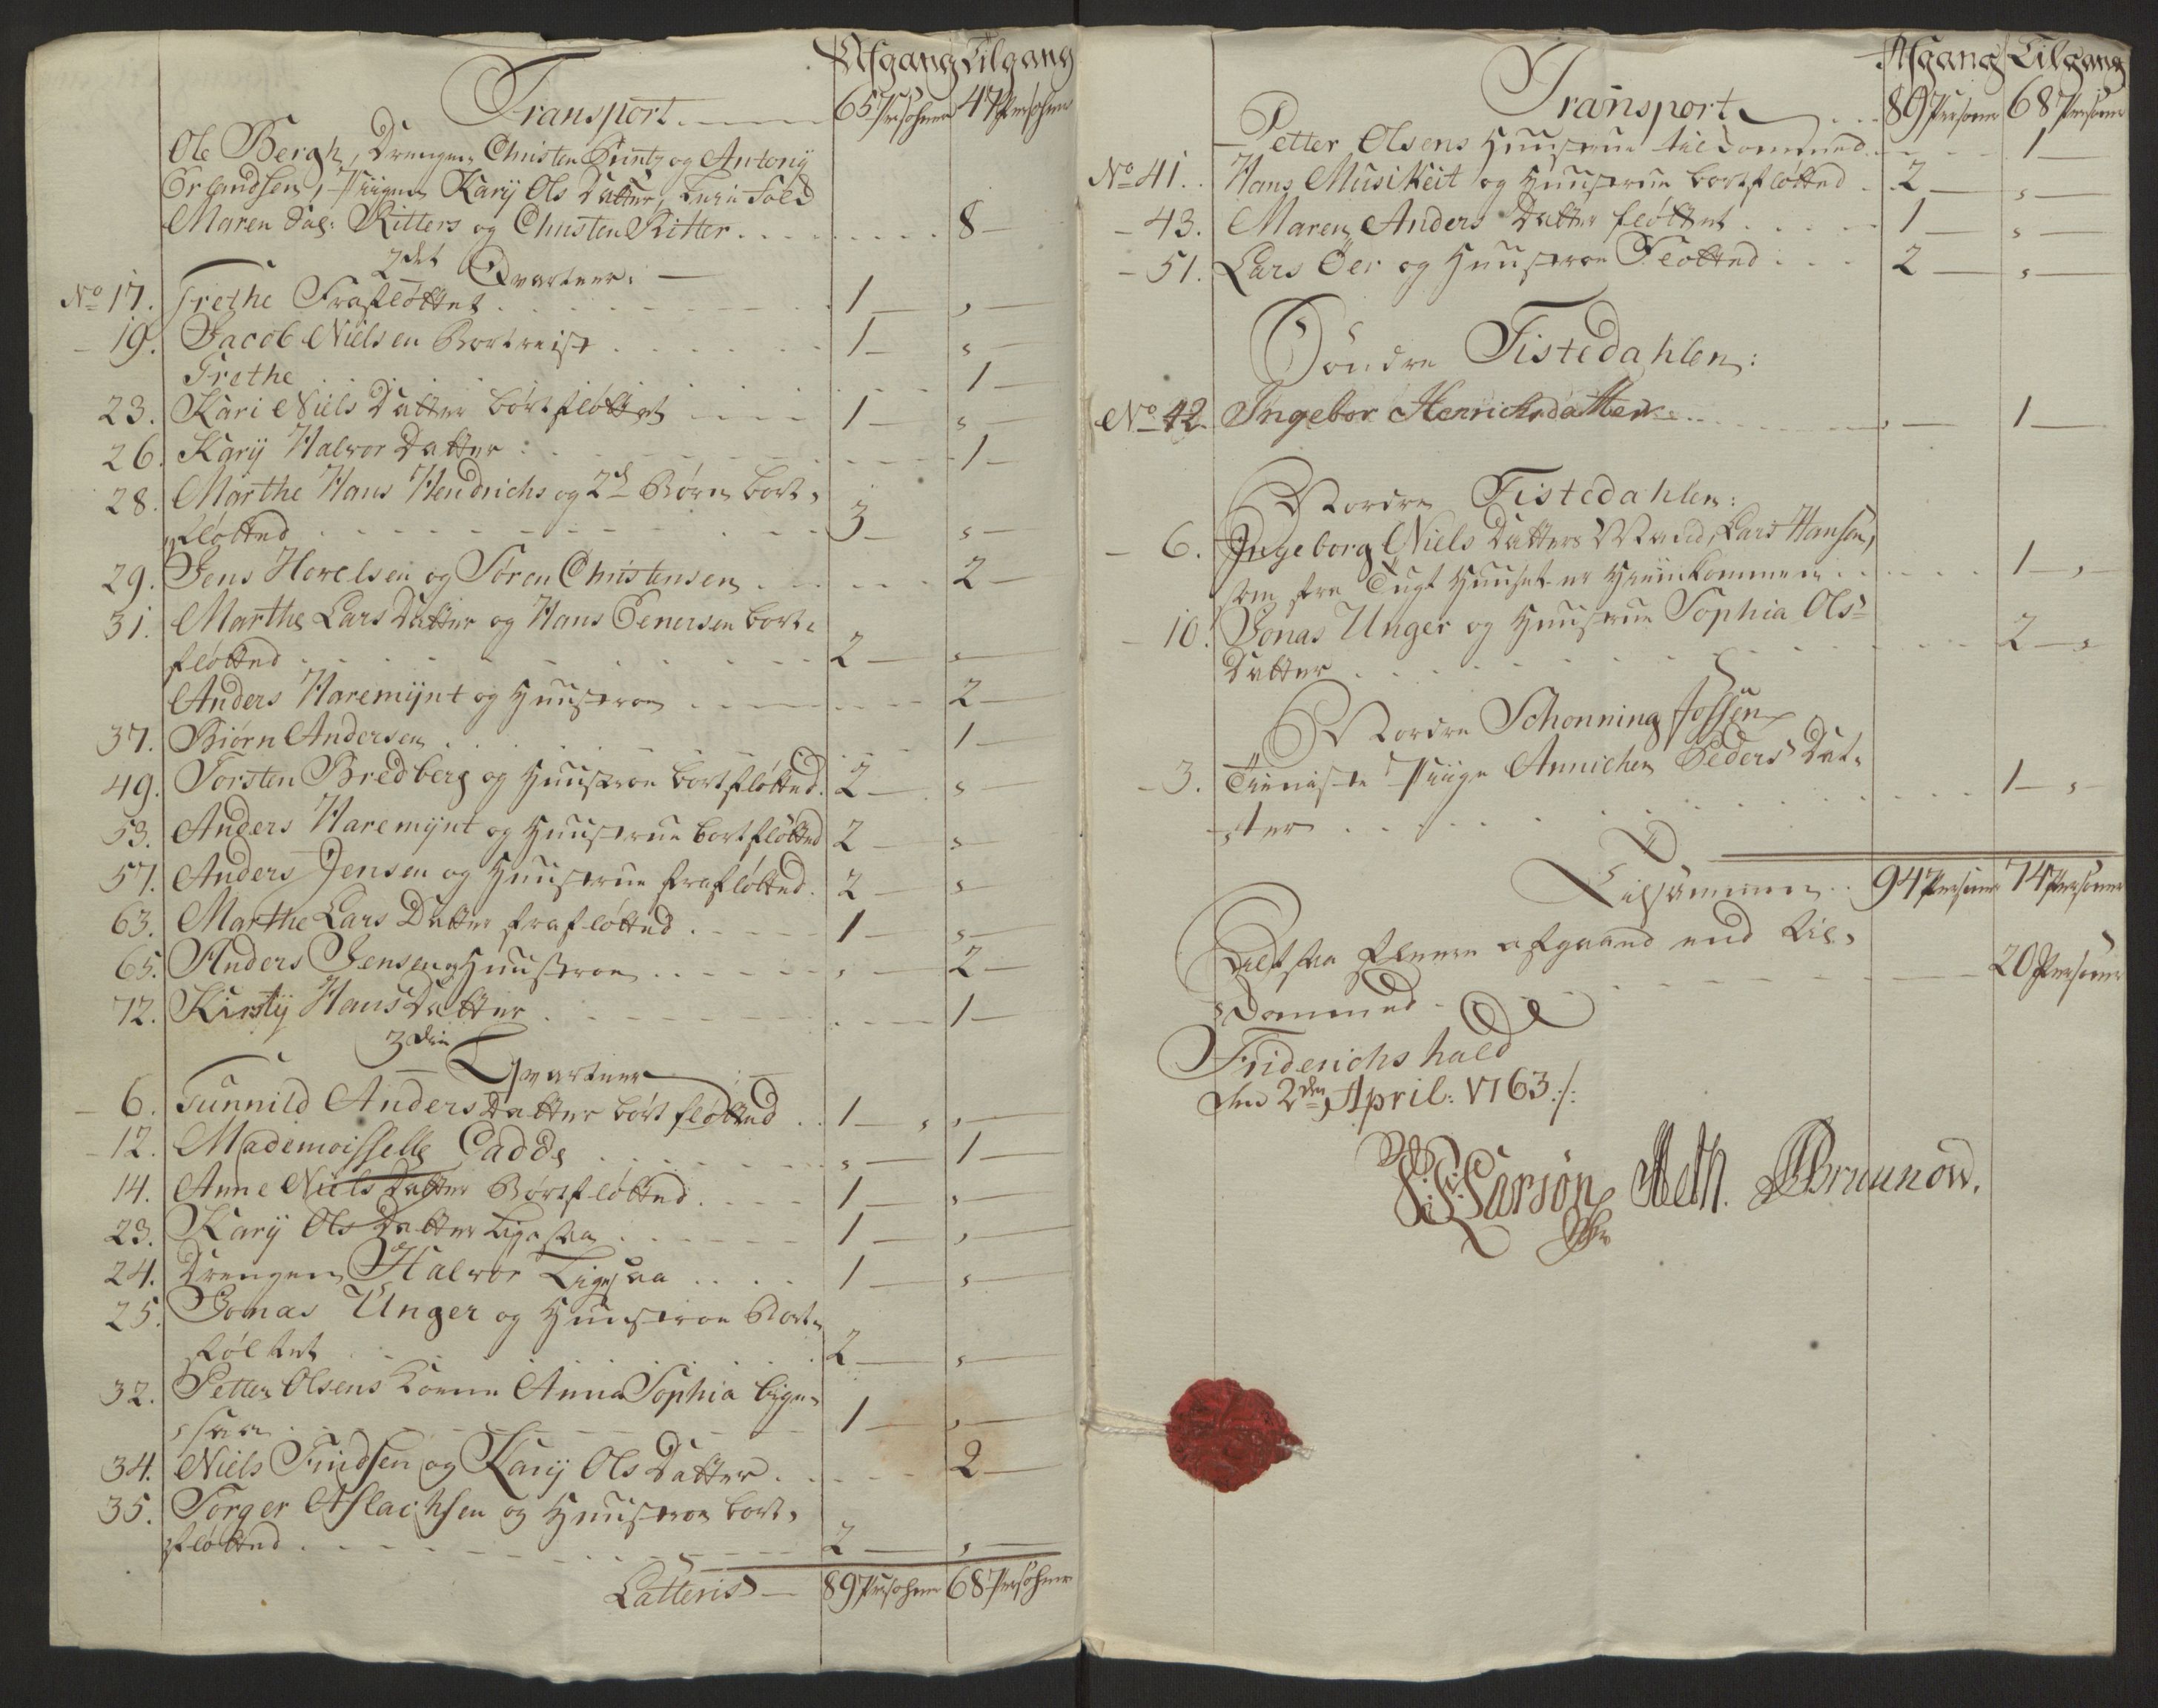 Afgang Tilgang
Transport 65 Persohner 47 Persohner
Ole Bergh, Drengen Christen Buntz og Antony
Erlandsen, Piigen Kary Ols Datter,
Maren Sal: Ritters og Christen Ritter 8
2det Qvarteer:
No 17. Grethe Frafløttet 1 ,
19. Jacob Nielsen Bortreist 1 ,
Grethe 1
23. Kari Niels Datter bortfløttet 1 ,
26. Kary Halvor Datter 1
28. Marthe Hans Hendrichs og 2de Børn bort,
fløtted 3 ,
29. Jens Hovelsen og Søren Christensen 2
31. Marthe Lars Datter og Hans Eenersen bort,
fløtted 2 ,
Anders Haremynt og Huustroe 2
37. Biørn Andersen 1
49. Torsten Bredberg og Huustroe bortfløtted. 2 ,
53. Anders Haremynt og Huustrue bortfløtted 2 ,
57. Anders Jensen og Huustrue frafløtted. 2 ,
63. Marthe Lars Datter frafløtted 1 ,
65. Anders Jensen og Huustroe , 2
72. Kirsty Hans Datter 1
3die
Qvarteer
6. Gunnild Anders Datter bort fløtted 1 ,
12. Mademoisselle Cadde , 1
14. Anne Niels Datter Bortfløtted 1 ,
23. Kary Ols Datter Ligesaa 1 ,
24. Drengen Halvor Ligesaa 1 ,
25. Jonas Unger og Huustroe Bort,
føltet 2 ,
32. Petter Olsens Konne Anna Sophia lige,
saa 1 ,
34. Niels Findsen og Kary Ols Datter 2
35. Torger Aslachsen og Huustroe bort,
fløtted 2 ,
Latteris 89 Persohner 68 Persohner
Afgang Tilgang
Transport 89 Personer 68 Personer
Petter Olsens Huustrue tilkommed 1
No 41. Hans Musikeit og Huustrue bortfløtted 2 ,
43. Maren Anders Datter fløttet 1 ,
51. Lars Öer og Huustroe Fløtted 2 ,
Søndre Tistedahlen:
No 42. Ingebor Henrichsdatter , 1
Nordre Tistedahlen:
6. Ingeborg Niels Datters Mand, Lars Hansen,
som fra Tugt Huuset er Hiemkommen 1 ,
10. Jonas Unger og Huustrue Sophia Ols=
Datter 2 ,
Nordre Schonning Fossen
3. Tieniste Piige Annichen Peders Dat,
ter 1 ,
Tilsammen 94 Persuner 74 Persuner
Altsaa fleere afgaaed end til,
kommed 20 Personer
Friderichshald
den 2den April: 1763 :/:
Larsøn Aeth. Bruunow.